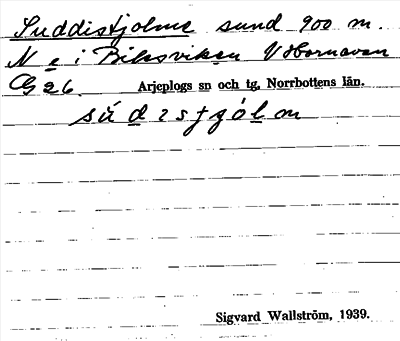 Suddistjolme sund 900 m.
N e i Bilasviken V Hornavan
G 26. Arjeplogs sn och tg, Norrbottens län.
Sigvard Wallström, 1939.